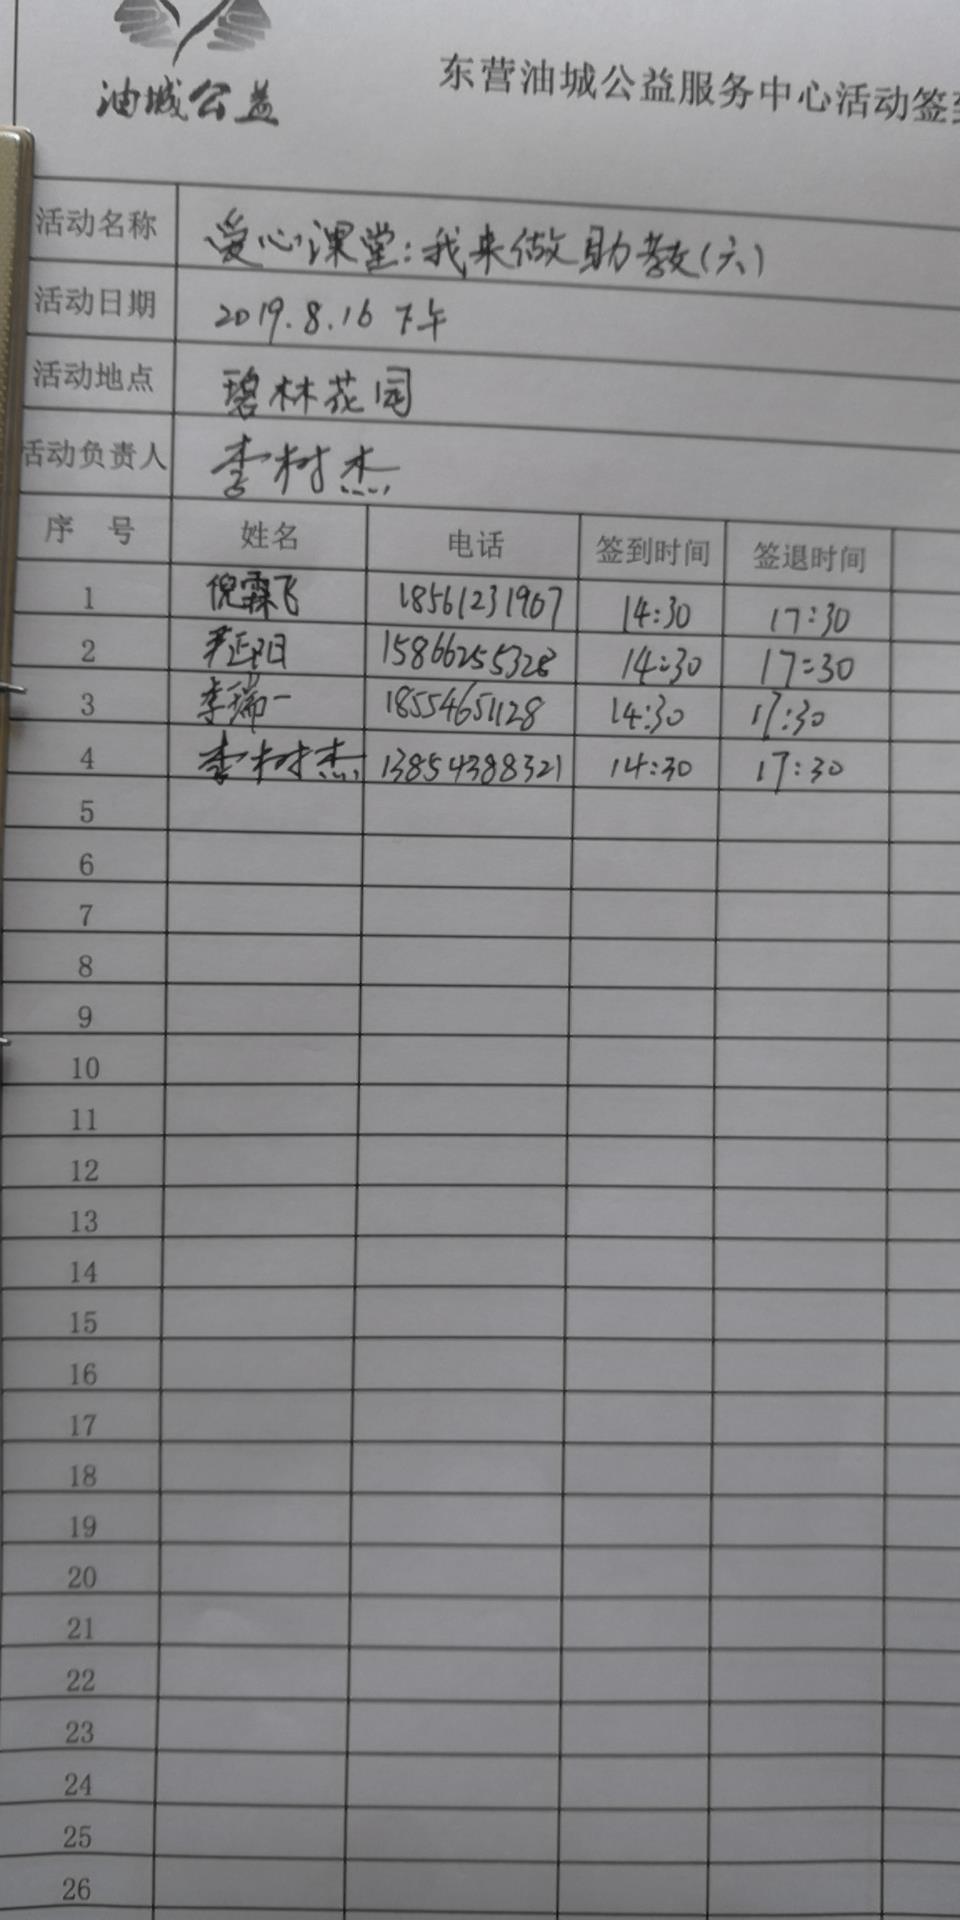 油城公益
东营油城公益服务中心活动签到
活动名称 爱心课堂:我来做助教(六)
活动日期 2019.8.16 下午
活动地点 碧林花园
活动负责人 李树杰
序 号 姓名 电话 签到时间 签退时间
1 倪霖飞 18561231907 14:30 17:30
2 尹正阳 15866255328 14:30 17:30
3 李瑞一 18554651128 14:30 17:30
4 李树杰 13854388321 14:30 17:30
5
6
7
8
9
10
11
12
13
14
15
16
17
18
19
20
21
22
23
24
25
26